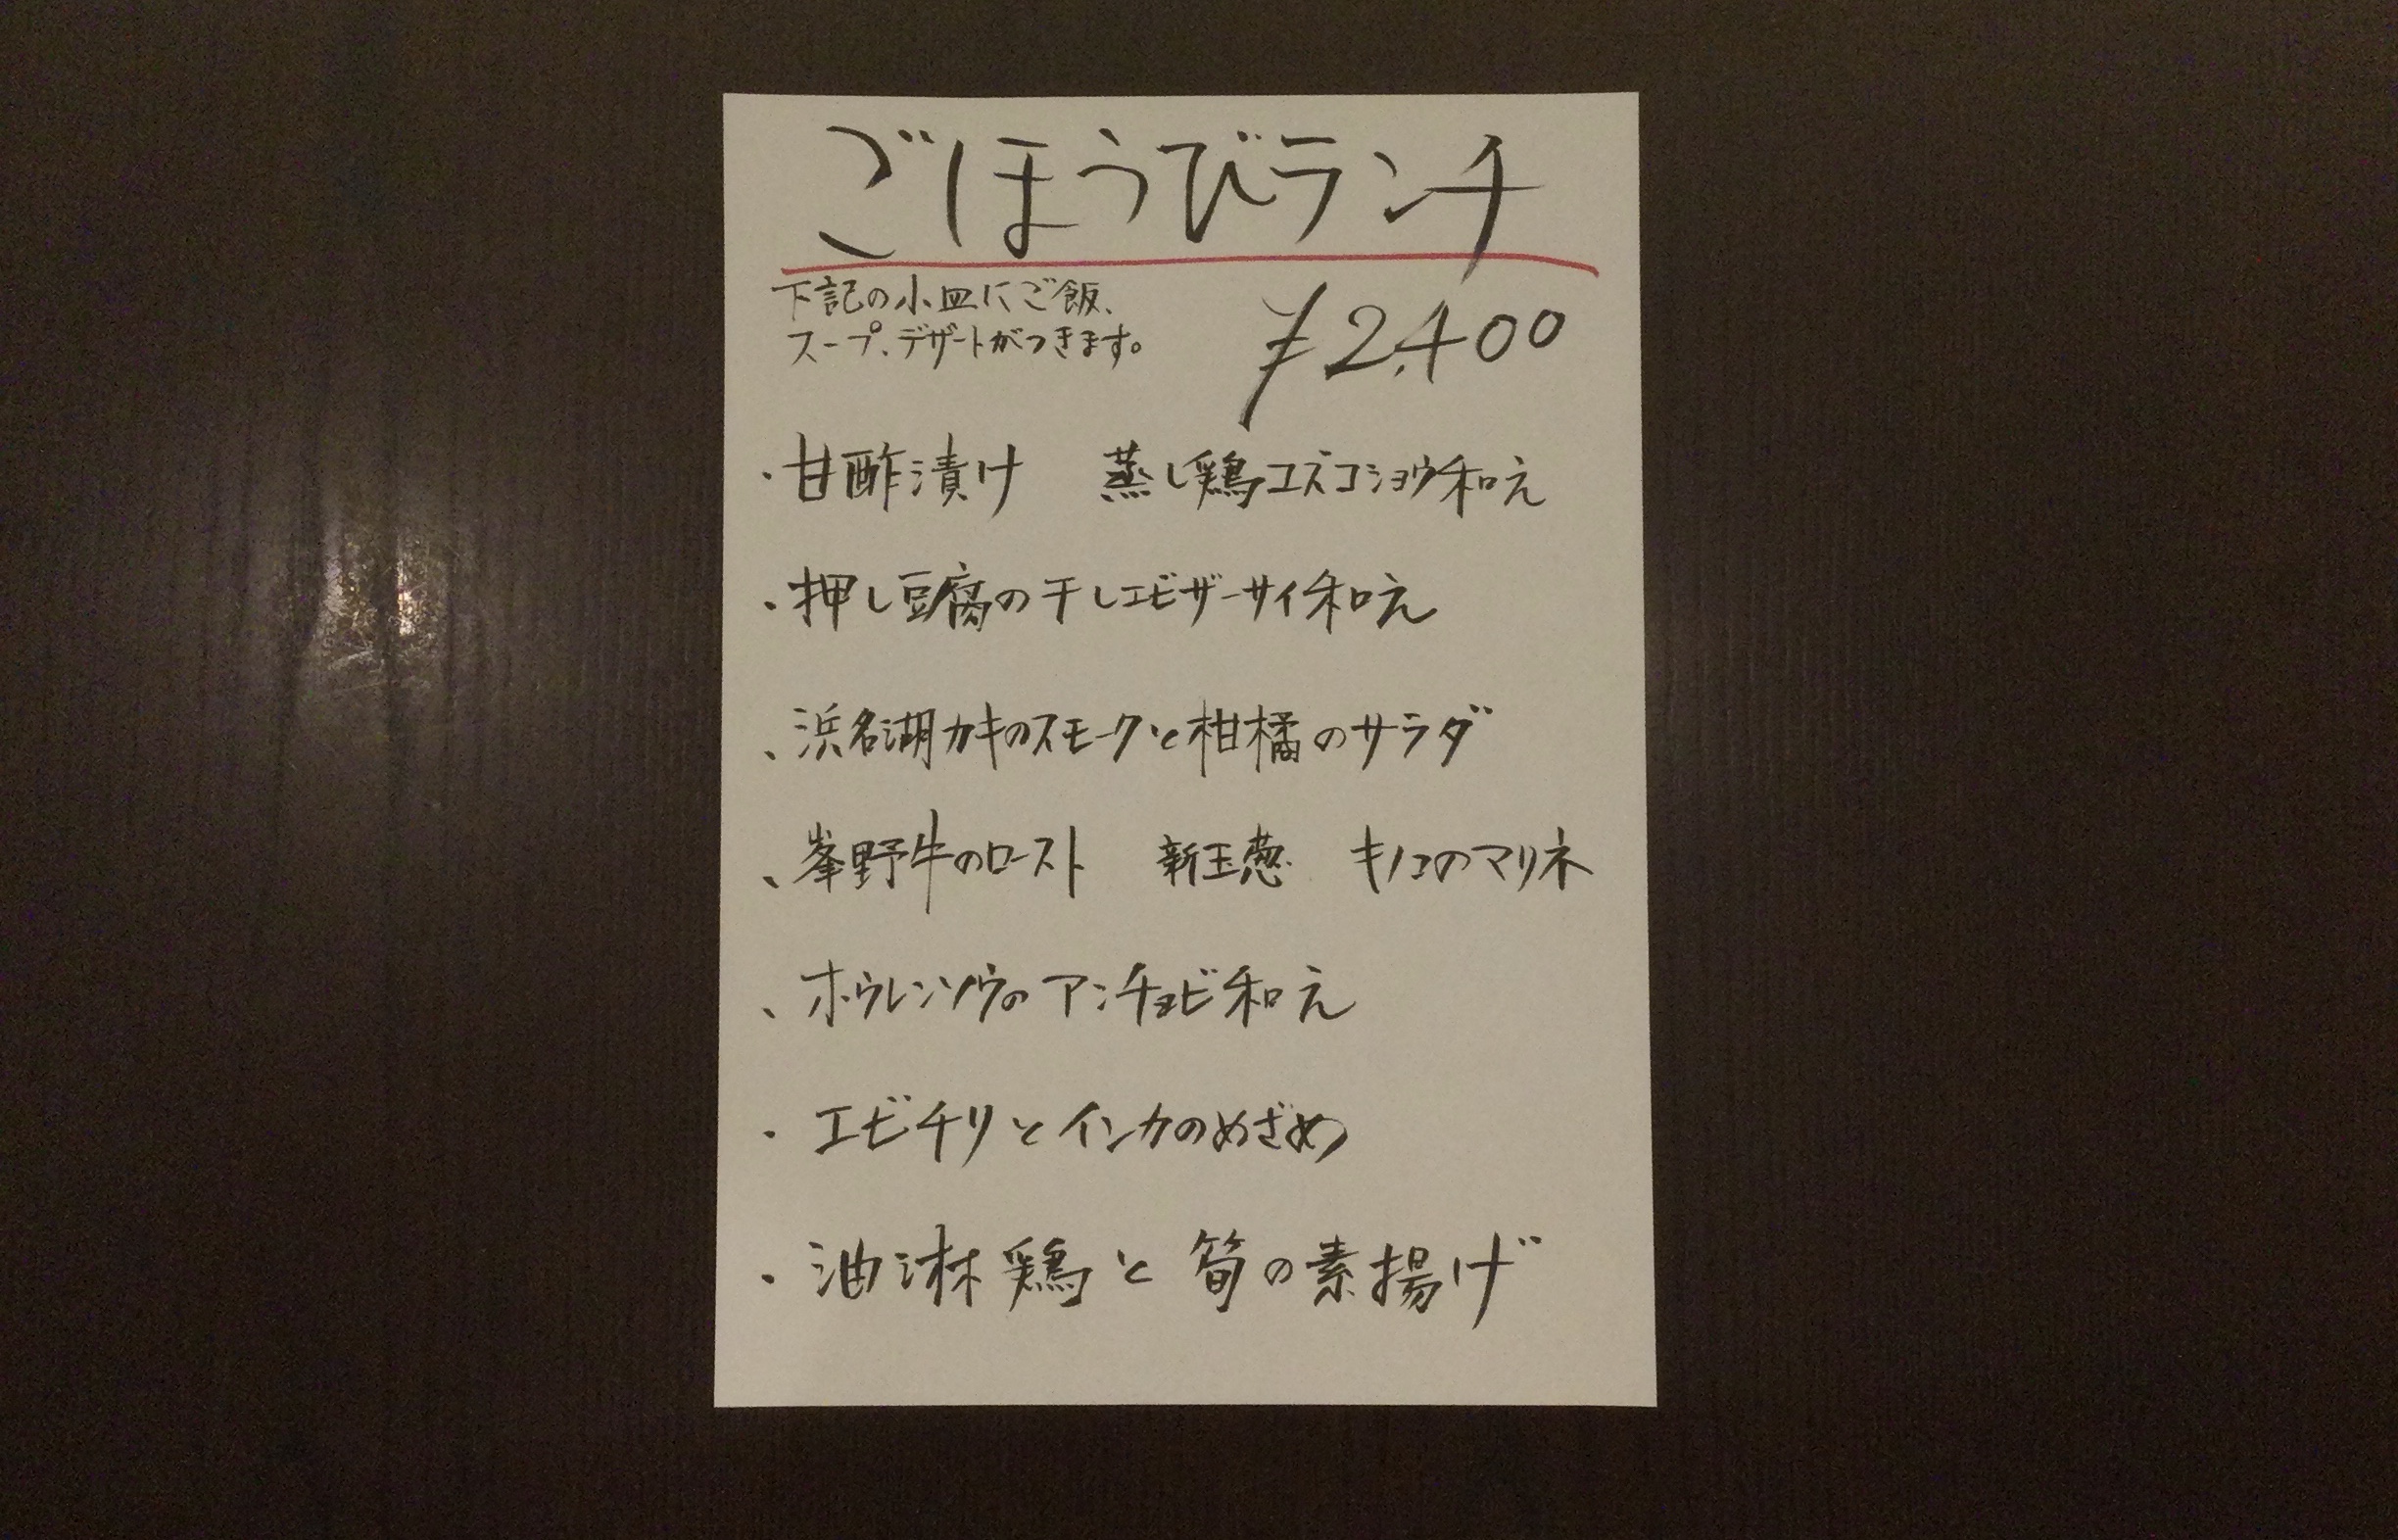 ごほうびランチ
下記の小皿にご飯、
スープ、デザートがつきます。
¥2,400
・甘酢漬け 蒸し鶏ユズコショウ和え
・押し豆腐の干しエビザーサイ和え
、浜名湖カキのスモークと柑橘のサラダ
、峯野牛のロースト 新玉葱 キノコのマリネ
、ホウレンソウのアンチョビ和え
・エビチリとインカのめざめ
・油淋鶏と筍の素揚げ